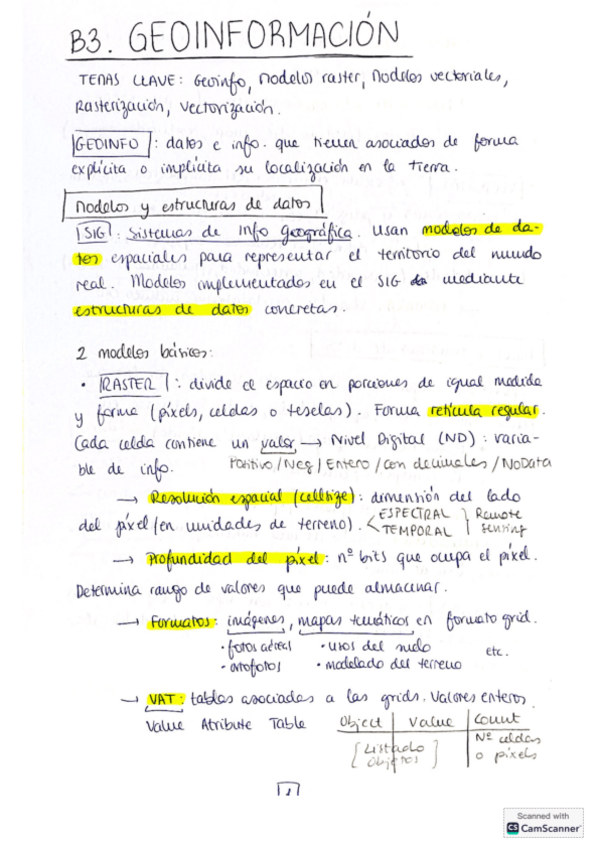 B3. GEOINFORMACIÓN
TEMAS CLAVE: Geoinfo, Modelos raster, Modelos vectoriales,
Rasterización, Vectorización.
GEOINFO: datos e info. que tienen asociados de forma
explícita o implícita su localización en la Tierra.
Modelos y estructuras de datos
SIG: Sistemas de Info geográfica. Usan modelos de da-
tos espaciales para representar el territorio del mundo
real. Modelos implementados en el SIG mediante
estructuras de datos concretas.
2 modelos básicos:
• RASTER: divide el espacio en porciones de igual medida
y forma (píxels, celdas o teselas). Forma retícula regular.
Cada celda contiene un valor → Nivel Digital (ND): varia-
ble de info. Positivo/Neg/Entero/con decimales/NoData
→ Resolución espacial (cellsize): dimensión del lado
del píxel (en unidades de terreno). < ESPECTRAL } Remote
TEMPORAL } Sensing
→ Profundidad del píxel: nº bits que ocupa el píxel.
Determina rango de valores que puede almacenar.
→ Formatos: imágenes, mapas temáticos en formato grid.
• fotos aéreas • usos del suelo etc.
• ortofotos • modelado del terreno
→ VAT: tablas asociadas a las grids. Valores enteros.
Value Atribute Table Object Value Count
[Listado Objetos] Nº celdas
o píxels
1
Scanned with
CS CamScanner